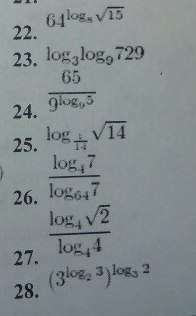 22. 64^{log_8 √15}
23. log_3 log_9 729
24. 65 / 9^{log_9 5}
25. log_{1/14} √14
26. log_4 7 / log_{64} 7
27. log_4 √2 / log_4 4
28. (3^{log_2 3})^{log_3 2}